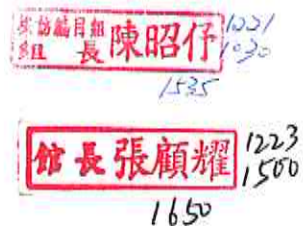 採訪編目組
組長 陳昭伃
1221
1030
1535
館長張顧耀
1223
1500
1650